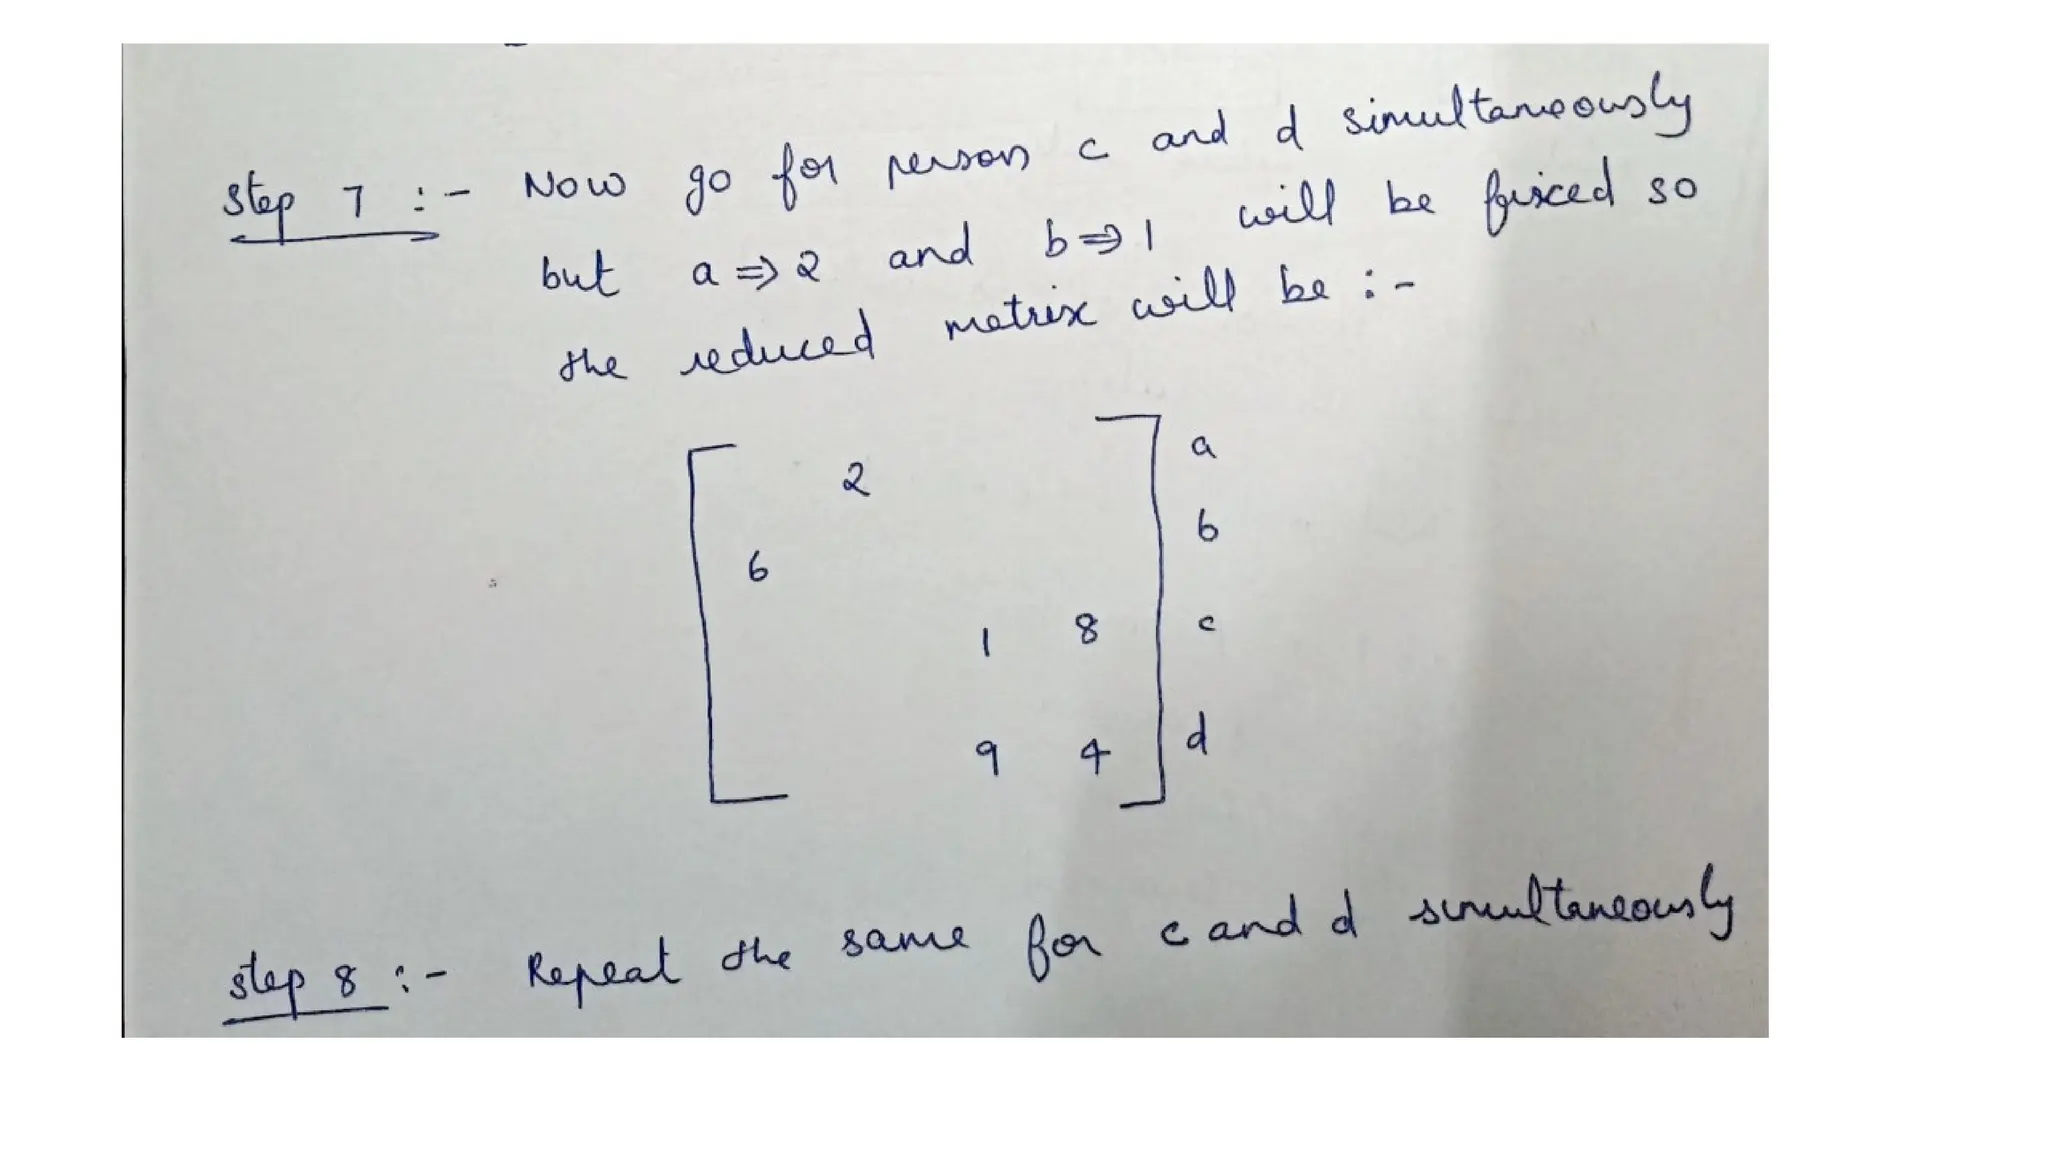 step 7 :- Now go for person c and d simultaneously
but a ⇒ 2 and b ⇒ 1 will be fixed so
the reduced matrix will be :-
2 a
6 b
1 8 c
9 4 d
step 8 :- Repeat the same for c and d simultaneously